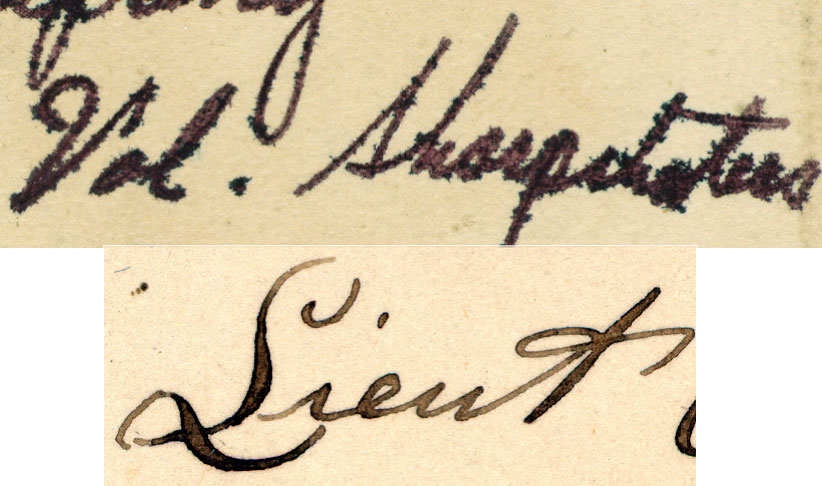 Vol. Sharpshooters
Lieut